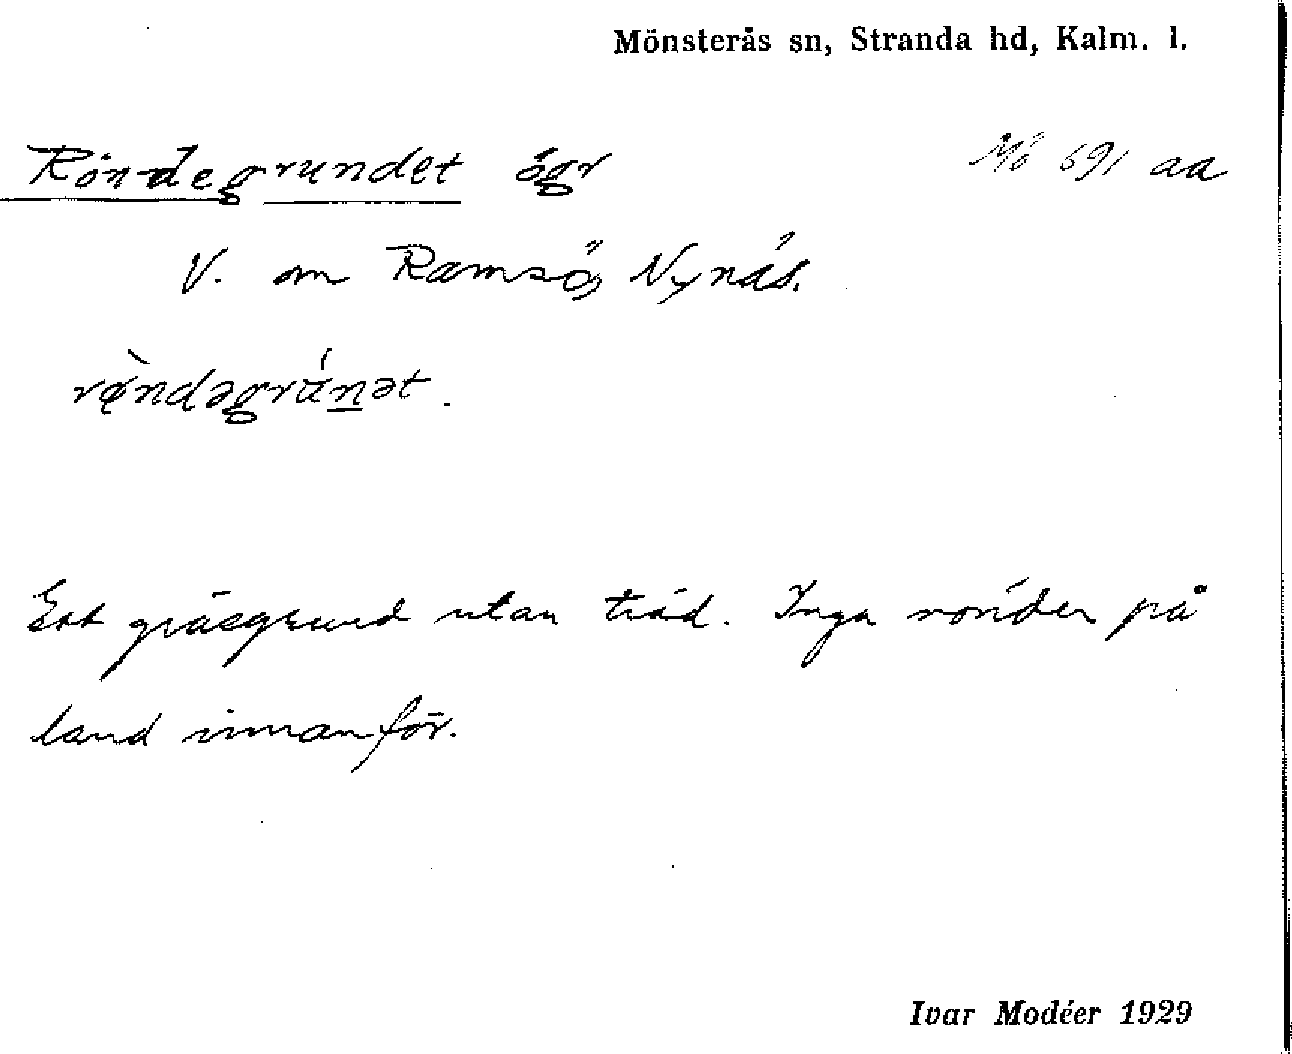 Mönsterås sn, Stranda hd, Kalm. l.
Röndegrundet ögr Mö 691 aa
V. om Ramsö, Nynäs.
rø̀ndəgrúnət.
Ett gräsgrund utan träd. Inga rönder på
land innanför.
Ivar Modéer 1929